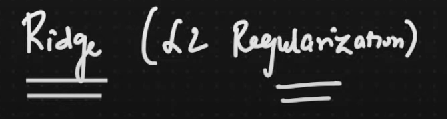 Ridge (L2 Regularization)